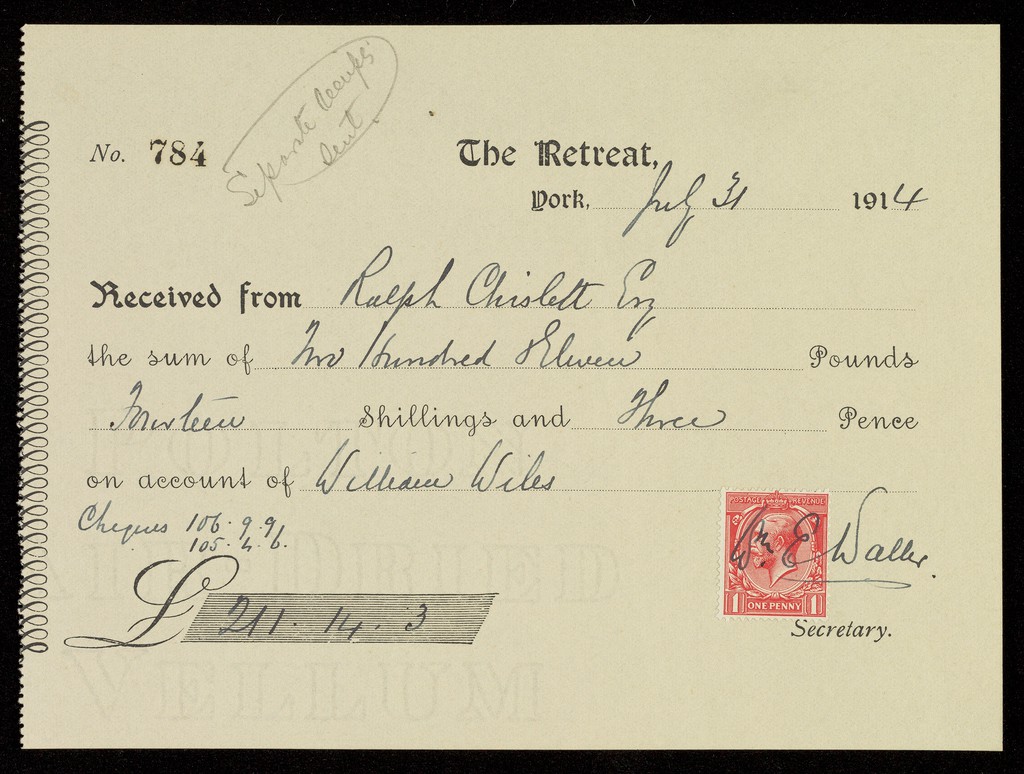 Separate Receipts
Sent
No. 784
The Retreat,
York, July 31 1914
Received from Ralph Chislett Esq
the sum of Two Hundred Eleven Pounds
Fourteen Shillings and Three Pence
on account of William Wiles
Cheques 106. 9. 9½
105. 4. 6.
£ 211. 14. 3
POSTAGE REVENUE
1 ONE PENNY 1
Wm E Waller.
Secretary.
VELLUM